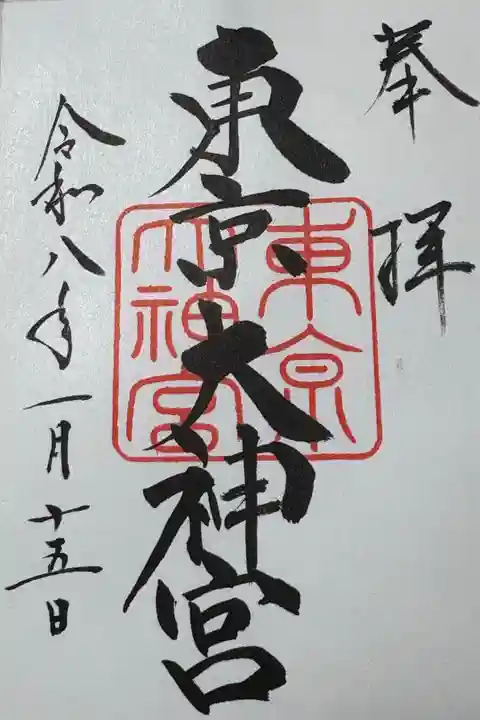 奉拝
東京大神宮
東京
大神宮
令和八年一月十五日